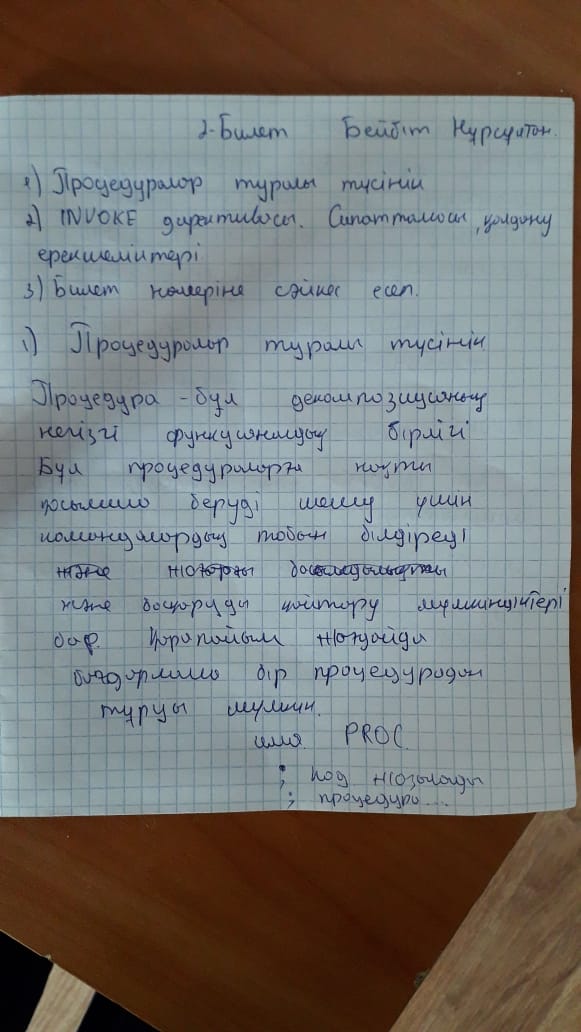 2-Билет Бейбіт Нұрсұлтан.
1) Процедуралар туралы түсінік
2) INVOKE директивасы. Сипатталасы, қолдану
ерекшеліктері
3) Билет номеріне сәйкес есеп.
1) Процедуралар туралы түсінік
Процедура - бұл декомпозицияның
негізгі функционалдық бірлігі
Бұл процедураларға нақты
қосымша беруді шешу үшін
командалардың тобын білдіреді
және басқаруды қайтару мүмкіндіктері
бар. Қарапайым жағдайда
бағдарлама бір процедурадан
тұруы мүмкін.
имя PROC
; код жазылады
; процедура....